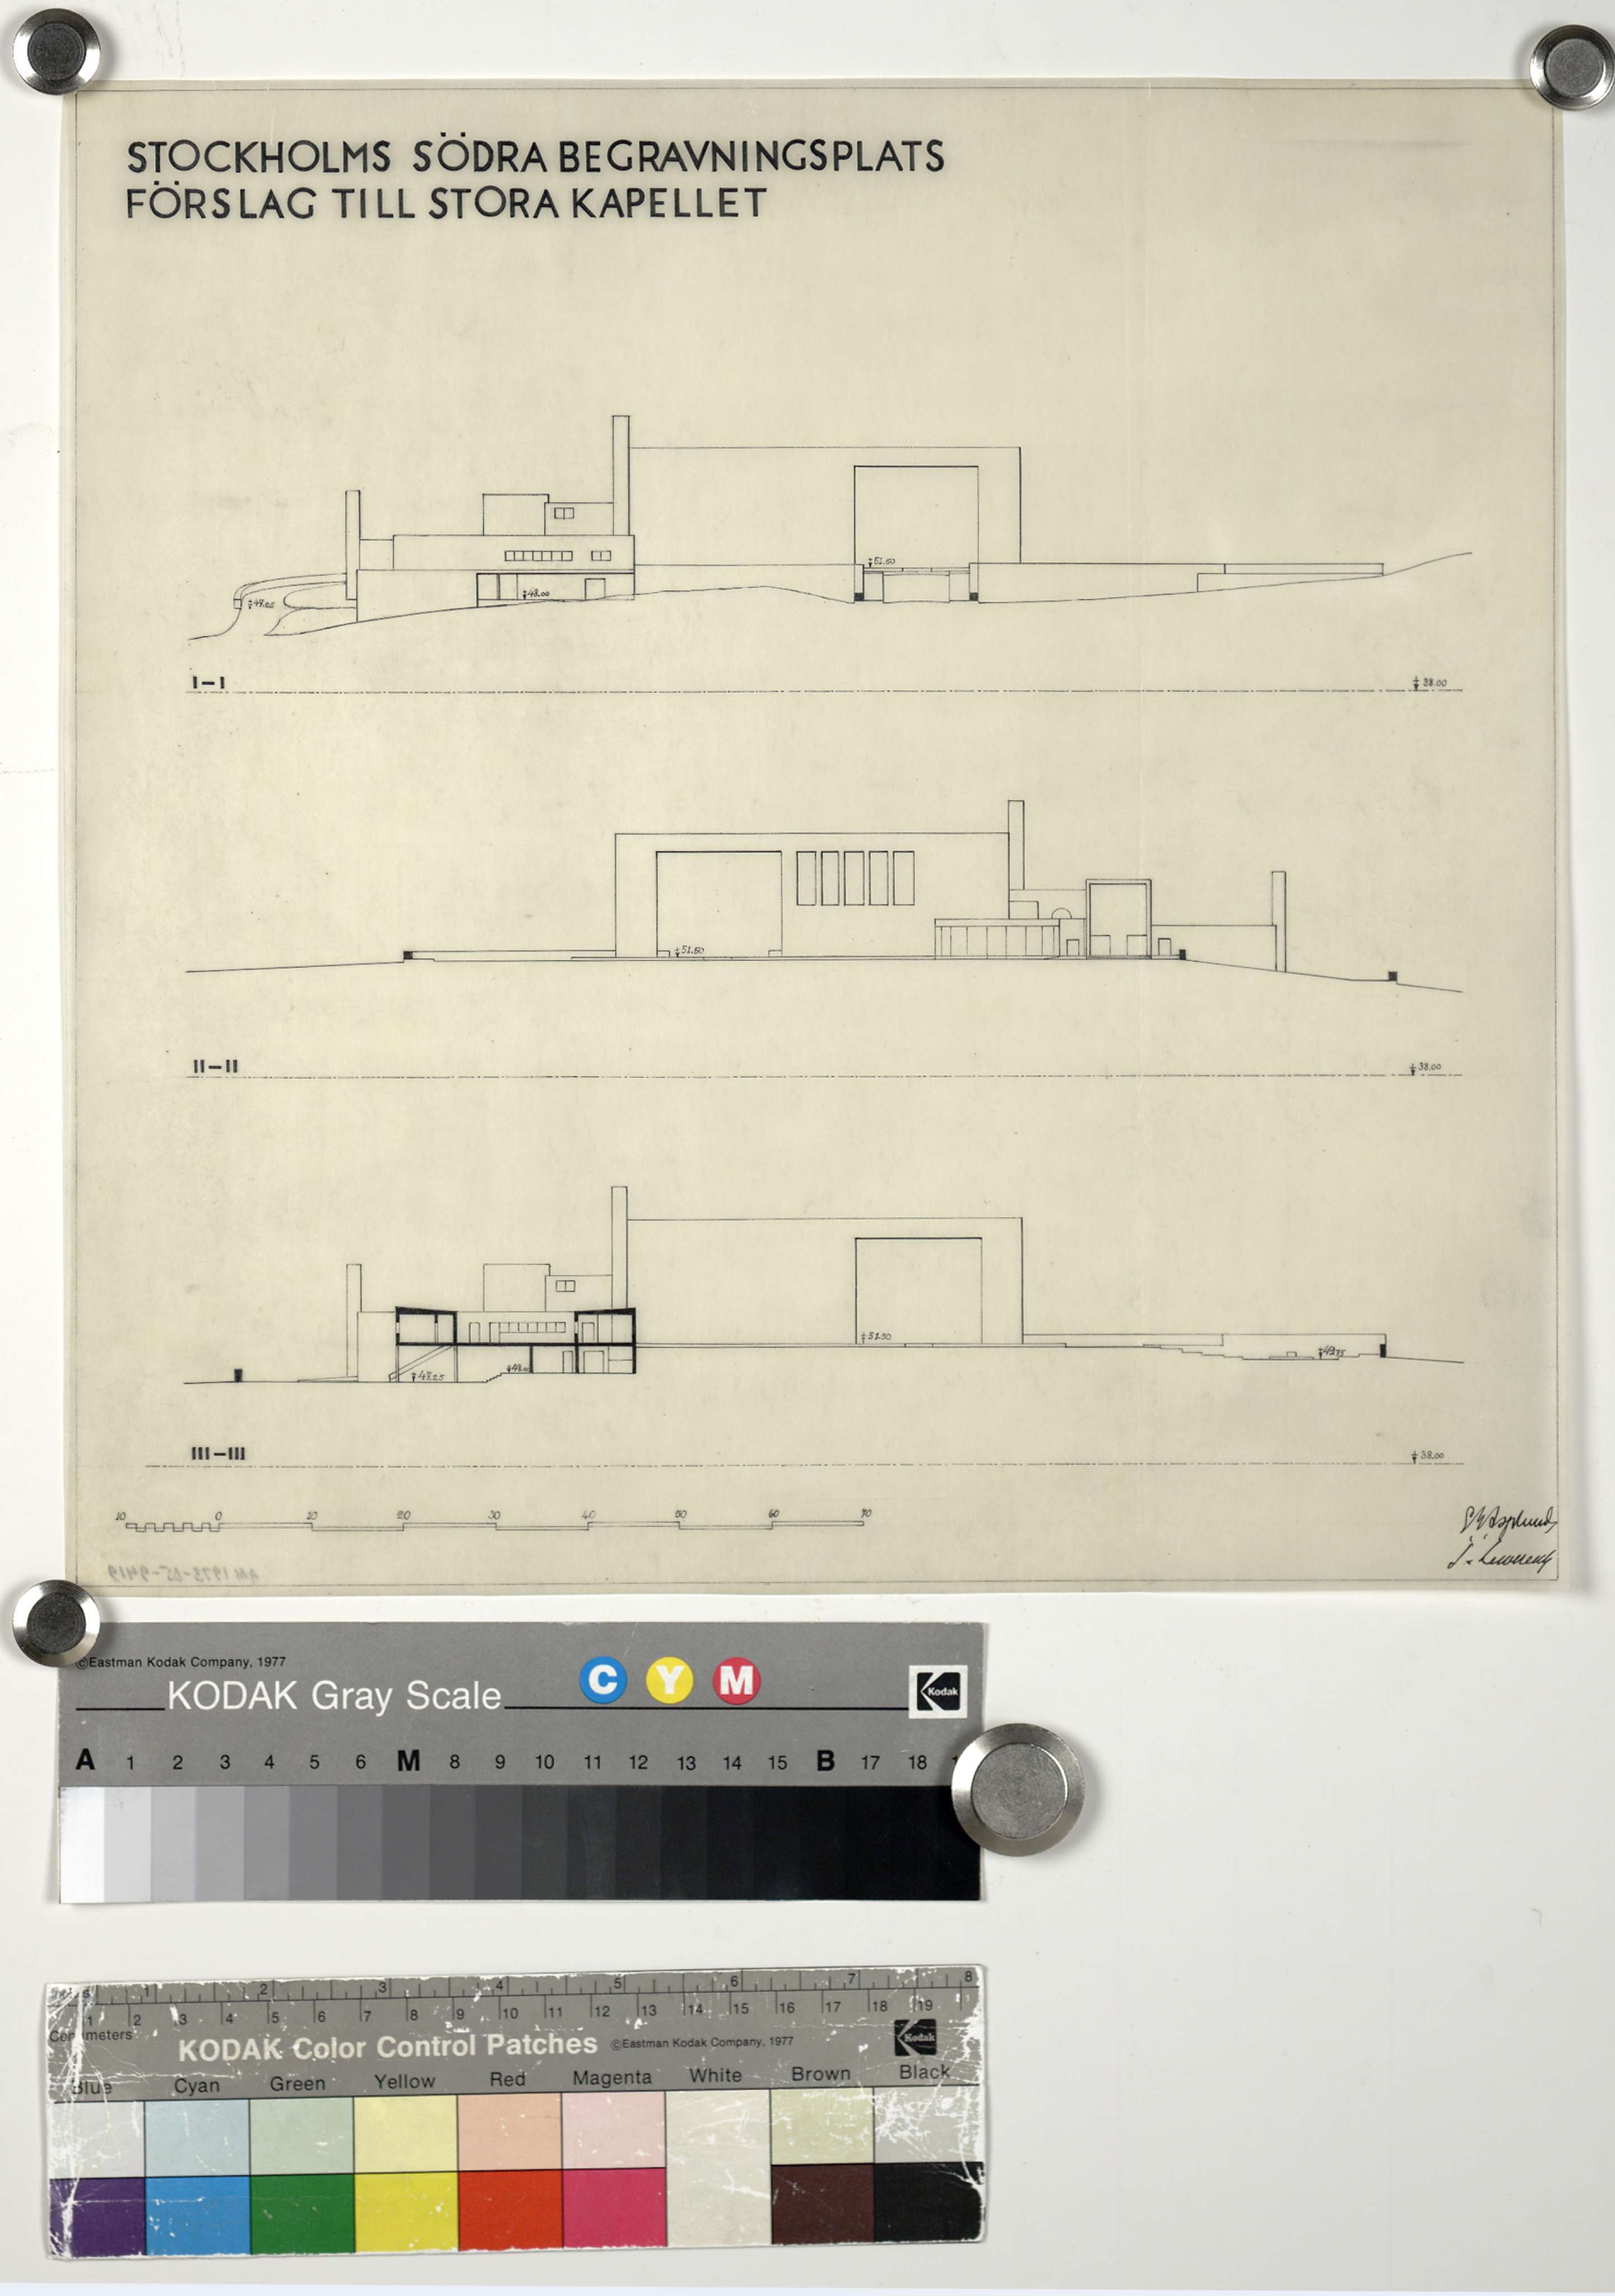 STOCKHOLMS SÖDRA BEGRAVNINGSPLATS
FÖRSLAG TILL STORA KAPELLET
51.50
47.25
48.00
I–I
38.00
51.50
II–II
38.00
51.50
47.25
49.75
III–III
38.00
10 0 10 20 30 40 50 60 70
AM 1973-05-9419
©Eastman Kodak Company, 1977
KODAK Gray Scale
C Y M
Kodak
A 1 2 3 4 5 6 M 8 9 10 11 12 13 14 15 B 17 18
1 2 3 4 5 6 7 8
1 2 3 4 5 6 7 8 9 10 11 12 13 14 15 16 17 18 19
Centimeters
KODAK Color Control Patches ©Eastman Kodak Company, 1977
Kodak
Blue Cyan Green Yellow Red Magenta White Brown Black